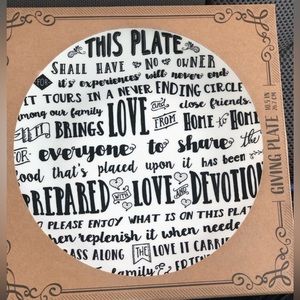 THIS PLATE
SHALL HAVE NO OWNER
FOR it's experiences will never end
IT TOURS IN A NEVER ENDING CIRCLE
among our family AND close friends.
IT BRINGS LOVE FROM HOME TO HOME
FOR everyone to share the
food that's placed upon it has been
PREPARED WITH LOVE AND DEVOTION
PLEASE ENJOY WHAT IS ON THIS PLATE
then replenish it when needed
PASS ALONG THE LOVE IT CARRIES
family & FRIENDS
GIVING PLATE
10.5 IN
26.7 CM